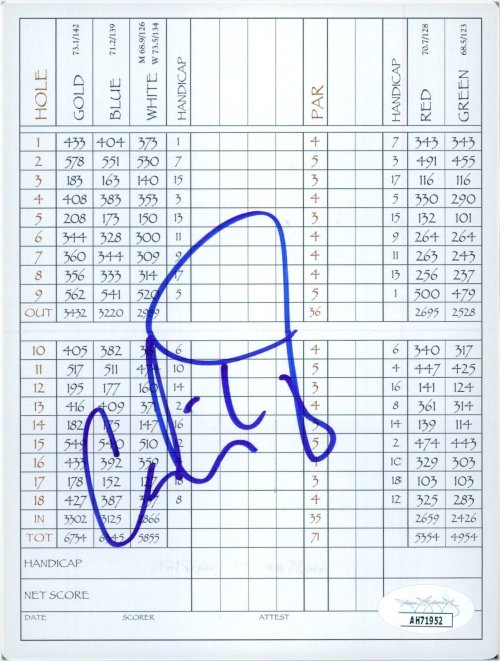 HOLE GOLD 73.1/142 BLUE 71.2/139 WHITE M 68.9/126 W 73.5/134 HANDICAP PAR HANDICAP RED 70.7/128 GREEN 68.5/123
1 433 404 373 1 4 7 343 343
2 578 551 530 7 5 3 491 455
3 183 163 140 15 3 17 116 116
4 408 383 353 3 4 5 330 290
5 208 173 150 13 3 15 132 101
6 344 328 300 11 4 9 264 264
7 360 344 309 9 4 11 263 243
8 356 333 314 17 4 13 256 237
9 562 541 520 5 5 1 500 479
OUT 3432 3220 36 2695 2528
10 405 382 6 4 6 340 317
11 517 511 10 5 4 447 425
12 195 177 160 14 3 16 141 124
13 416 409 2 4 8 361 314
14 182 147 16 14 139 114
15 510 5 2 474 443
16 392 359 4 10 329 303
17 178 152 18 3 18 103 103
18 427 387 8 4 12 325 283
IN 3302 3125 35 2659 2426
TOT 6734 5855 71 5354 4954
HANDICAP
NET SCORE
DATE SCORER ATTEST
AH71952